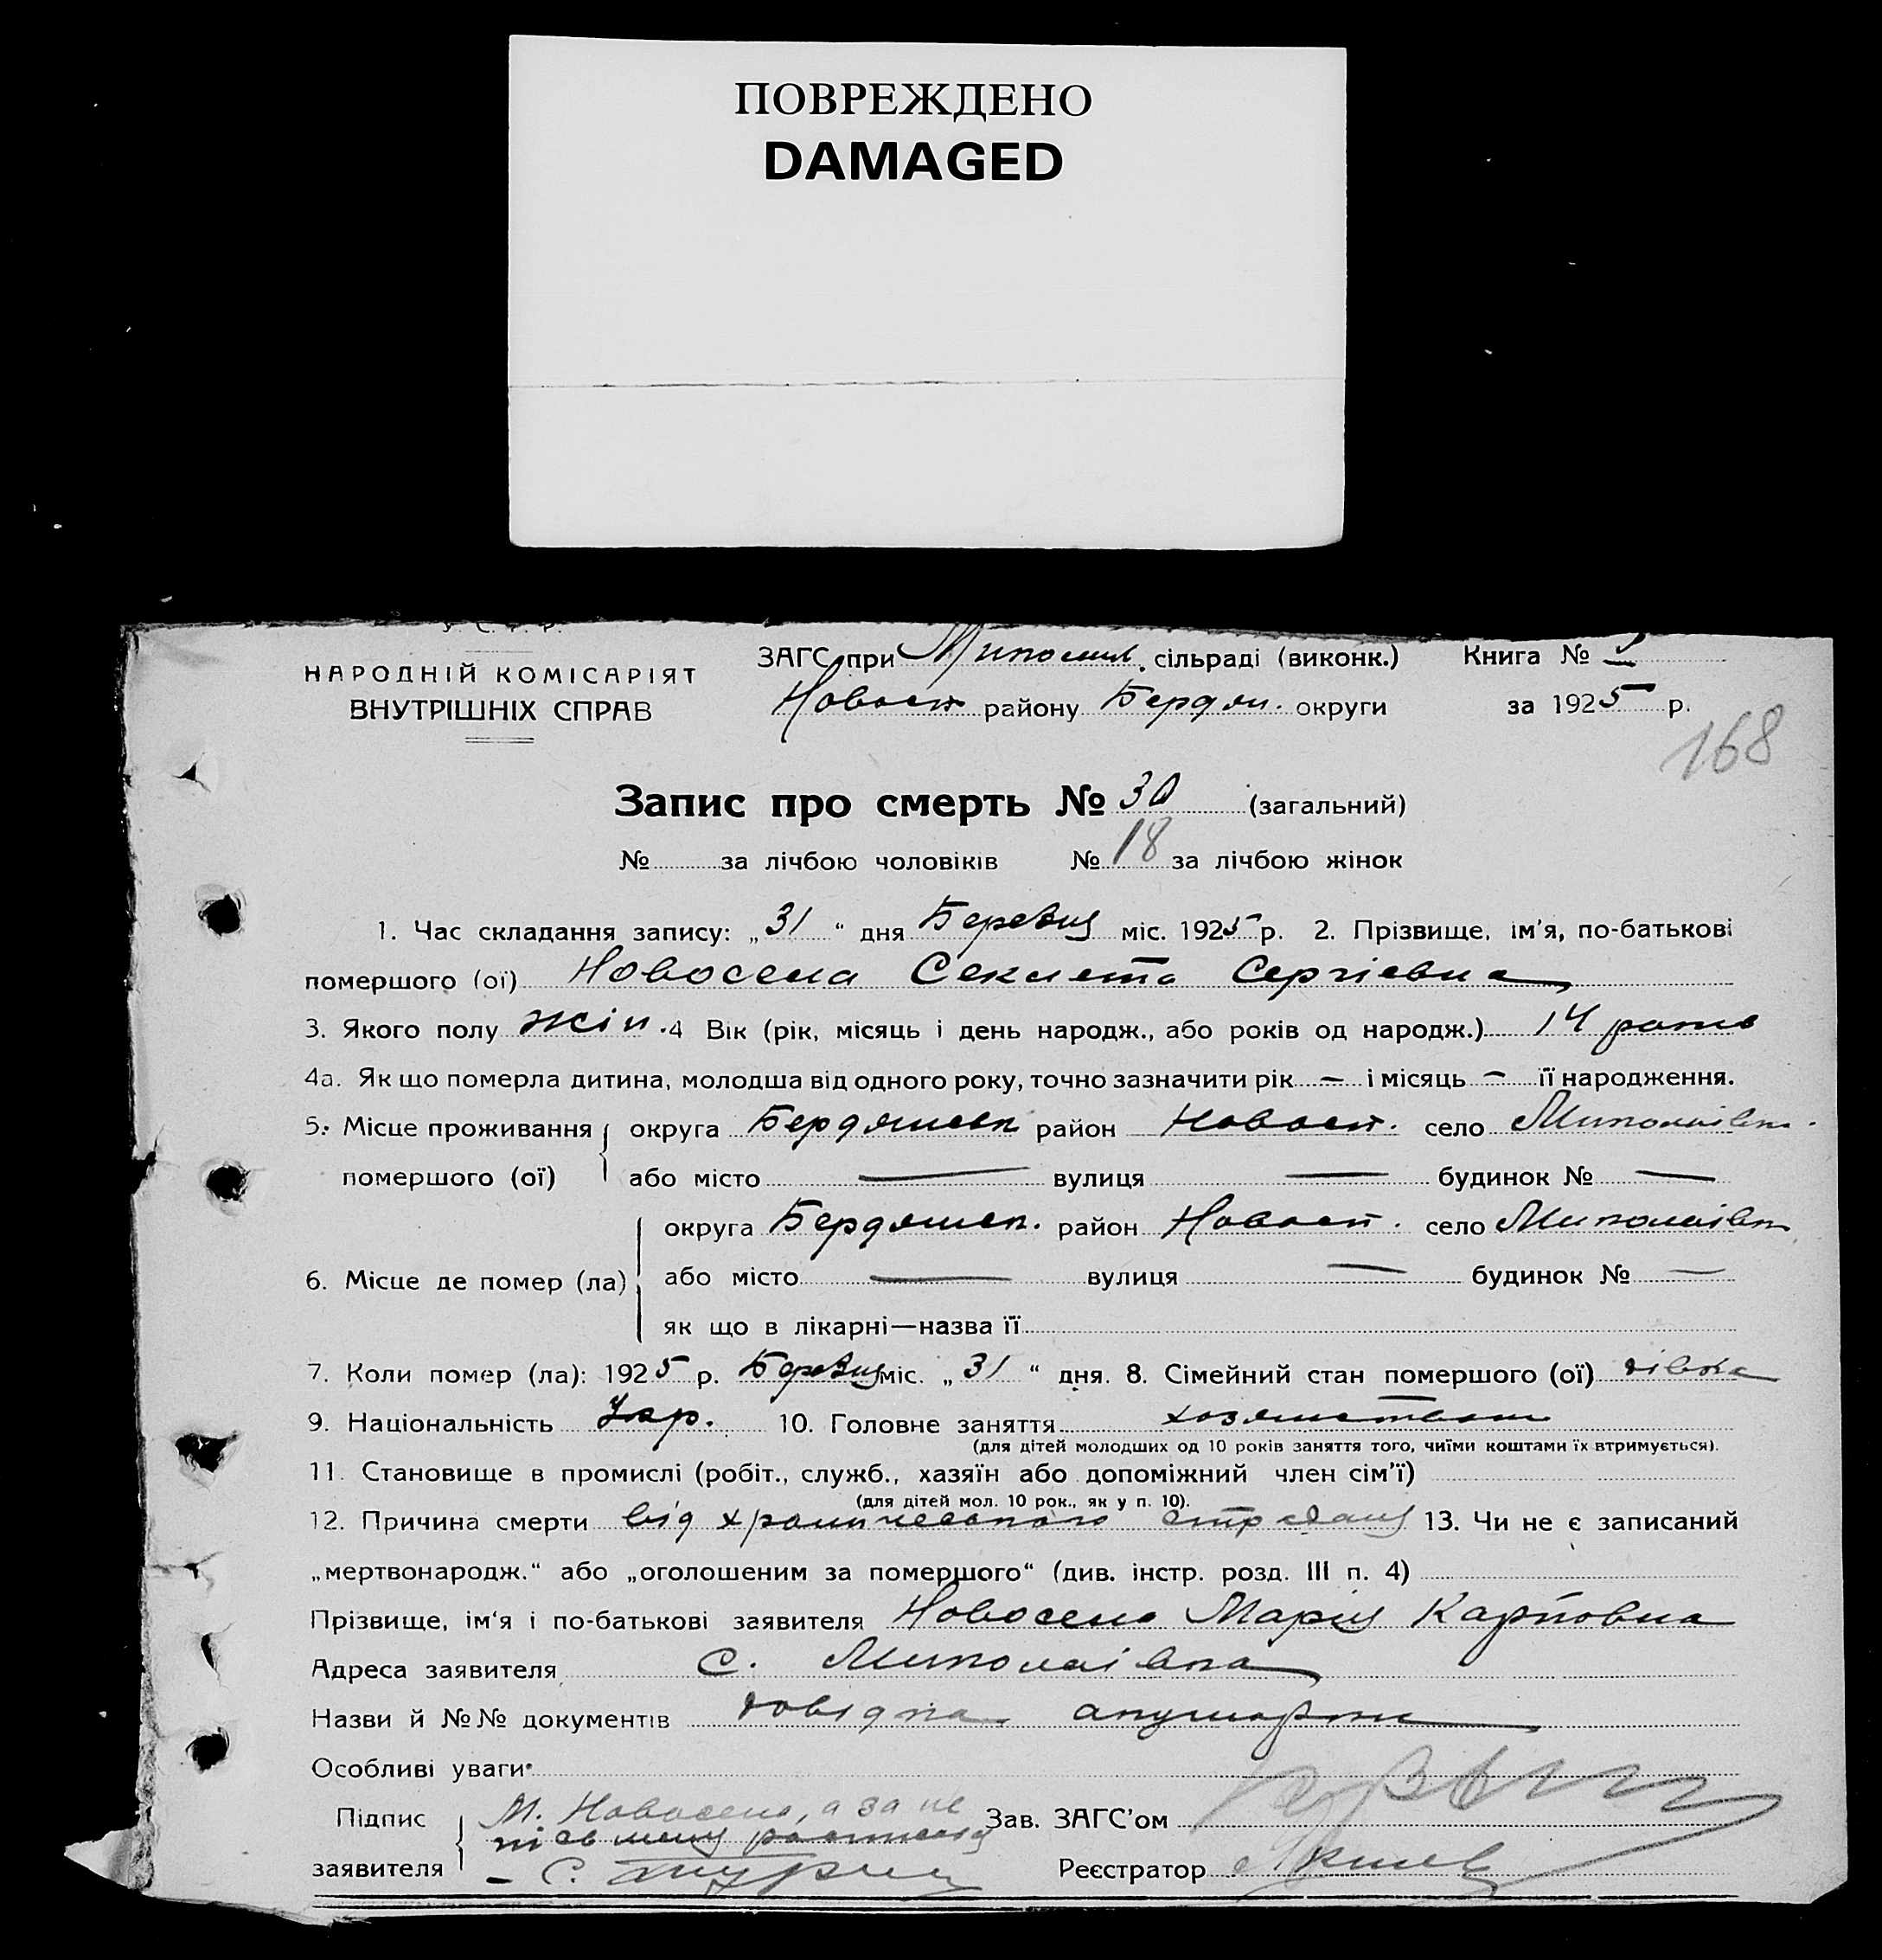 ПОВРЕЖДЕНО
DAMAGED
У. С. Р. Р.
НАРОДНІЙ КОМІСАРІЯТ
ВНУТРІШНІХ СПРАВ
ЗАГС при Миколаів. сільраді (виконк.) Книга №
Новосп району Бердян. округи за 1925 р.
168
Запис про смерть № 30 (загальний)
№ за лічбою чоловіків № 18 за лічбою жінок
1. Час складання запису: „31“ дня Березня міс. 1925 р. 2. Прізвище, ім'я, по-батькові
помершого (ої) Новосела Секлета Сергієвна
3. Якого полу жін. 4 Вік (рік, місяць і день народж., або років од народж.) 14 років
4а. Як що померла дитина, молодша від одного року, точно зазначити рік — і місяць — її народження.
5. Місце проживання помершого (ої) округа Бердянськ район Новосп. село Миколаівк.
або місто — вулиця — будинок № —
6. Місце де помер (ла) округа Бердянск. район Новосп. село Миколаівк
або місто — вулиця — будинок № —
як що в лікарні—назва її
7. Коли помер (ла): 1925 р. Березня міс. „31“ дня. 8. Сімейний стан помершого (ої) дівка
9. Національність Укр. 10. Головне заняття
(для дітей молодших од 10 років заняття того, чиїми коштами їх втримується).
11. Становище в промислі (робіт., служб., хазяїн або допоміжний член сім'ї)
(для дітей мол. 10 рок., як у п. 10).
12. Причина смерти від хронического 13. Чи не є записаний
„мертвонародж.“ або „оголошеним за помершого“ (див. інстр. розд. III п. 4)
Прізвище, ім'я і по-батькові заявителя Новосела Марія Карповна
Адреса заявителя с. Миколаівка
Назви й №№ документів довідка акушорки
Особливі уваги
Підпис заявителя М. Новосела, а за не
Зав. ЗАГС'ом
Реєстратор